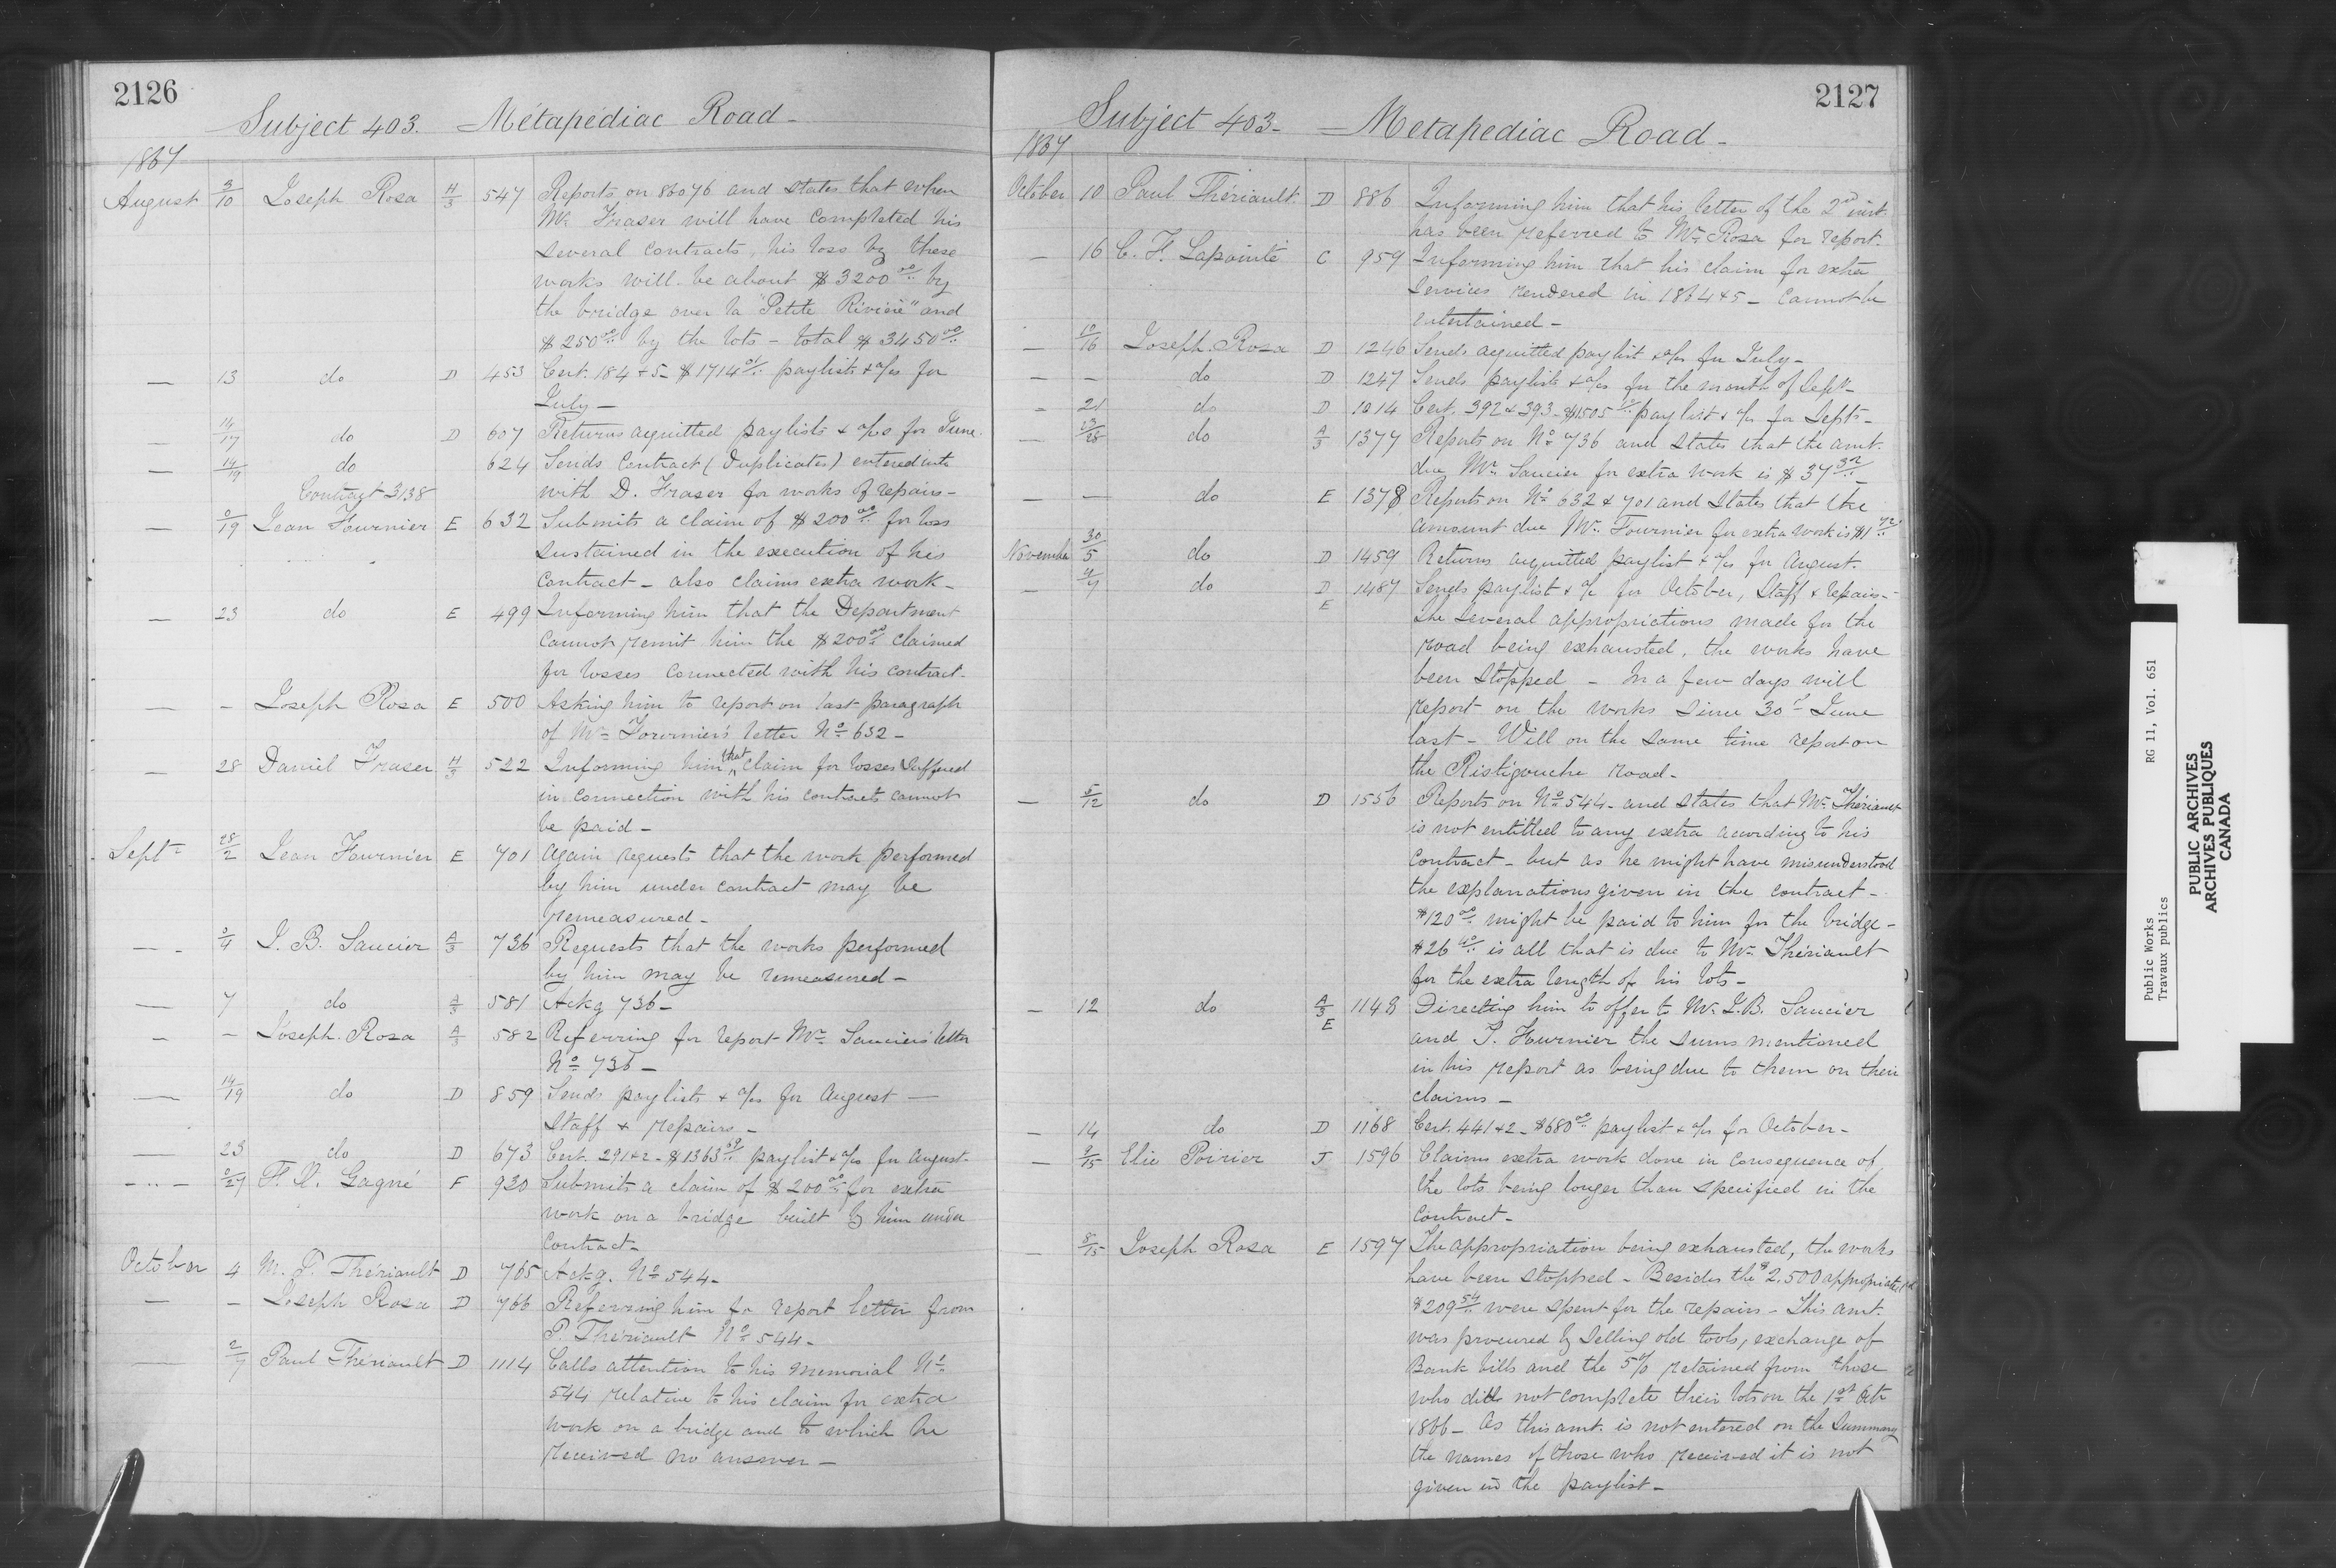 2126
Subject 403. — Métapédiac Road —
1867
August 9/10 Joseph Rosa H/3 547 Reports on 86076 and states that when
Mr. Fraser will have completed his
several contracts, his loss by these
works will be about $3200 00/.. by
the bridge over la "Petite Rivière" and
$250 00/.. by the lots — total $3450 00/..
— 13 do D 453 Cert. 184 & 5 — $1714 01/.. paylists & a/cs for
July —
— 14/17 do D 607 Returns acquitted paylists & a/cs for June.
— 14/19 do 624 Sends Contract (Duplicates) entered into
Contract 3138 with D. Fraser for works of repairs —
— 9/19 Jean Fournier E 632 Submits a claim of $200 00/.. for loss
sustained in the execution of his
contract — also claims extra work —
— 23 do E 499 Informing him that the Department
cannot remit him the $200 00/.. claimed
for losses connected with his contract.
— – Joseph Rosa E 500 Asking him to report on last paragraph
of Mr. Fournier's letter No. 632 —
— 28 Daniel Fraser H/3 522 Informing him that claim for losses suffered
in connection with his contracts cannot
be paid —
Sept. 28/2 Jean Fournier E 701 Again requests that the work performed
by him under contract may be
remeasured —
— 3/4 J. B. Saucier A/3 736 Requests that the works performed
by him may be remeasured —
— 7 do A/3 581 Ackg 736 —
— – Joseph Rosa A/3 582 Referring for report Mr. Saucier's letter
No. 736 —
— 14/19 do D 859 Sends paylists & a/cs for August —
Staff & repairs —
— 23 do D 673 Cert. 291 & 2 — $1363 69/.. paylist & a/cs for August
— 9/27 F. X. Gagné F 930 Submits a claim of $200 00/.. for extra
work on a bridge built by him under
contract —
October 4 M. P. Thériault D 765 Ackg. No. 544 —
— – Joseph Rosa D 766 Referring him for report letter from
P. Thériault No. 544 —
— 2/7 Paul Thériault D 1114 Calls attention to his memorial No.
544 relative to his claim for extra
work on a bridge and to which he
received no answer —
2127
Subject 403 — Metapediac Road —
1867
October 10 Paul Thériault D 886 Informing him that his letter of the 2nd inst.
has been referred to Mr. Rosa for report.
— 16 C. F. Lapointe C 959 Informing him that his claim for extra
services rendered in 1864 & 5 — cannot be
entertained —
— 10/16 Joseph Rosa D 1246 Sends acquitted paylist & a/cs for July —
— — do D 1247 Sends paylists & a/cs for the month of Sept. —
— 21 do D 1014 Cert. 392 & 393 — $1505 paylist & a/cs for Septr. —
— 23/28 do A/3 1377 Reports on No. 736 and states that the amt.
due Mr. Saucier for extra work is $37 32/.. —
— — do E 1378 Reports on No. 632 & 701 and states that the
amount due Mr. Fournier for extra work is $1 72/..
November 30/5 do D 1459 Returns acquitted paylist & a/cs for August.
— 4/7 do D E 1487 Sends paylist & a/c for October, Staff & repairs —
The several appropriations made for the
road being exhausted, the works have
been stopped — In a few days will
report on the works since 30th June
last — Will on the same time report on
the Ristigouche road —
— 5/12 do D 1556 Reports on No. 544 — and states that Mr. Thériault
is not entitled to any extra according to his
contract — but as he might have misunderstood
the explanations given in the contract —
$120 00/.. might be paid to him for the bridge —
$26 40/.. is all that is due to Mr. Thériault
for the extra length of his lots —
— 12 do A/3 E 1148 Directing him to offer to Mr. J. B. Saucier
and J. Fournier the sums mentioned
in his report as being due to them on their
claims —
— 14 do D 1168 Cert. 441 & 2 — $680 00/.. paylist & a/cs for October —
— 9/15 Elie Poirier J 1596 Claims extra work done in consequence of
the lots being longer than specified in the
contract —
— 8/15 Joseph Rosa E 1597 The appropriation being exhausted, the works
have been stopped — Besides the $2.500 appropriated
$209 54/.. were spent for the repairs — This amt.
was procured by selling old tools, exchange of
Bank bills and the 5% retained from those
who did not complete their lots on the 1st Oct
1866 — As this amt. is not entered on the Summary
the names of those who received it is not
given in the paylist —
Public Works RG 11, Vol. 651
Travaux publics
PUBLIC ARCHIVES
ARCHIVES PUBLIQUES
CANADA